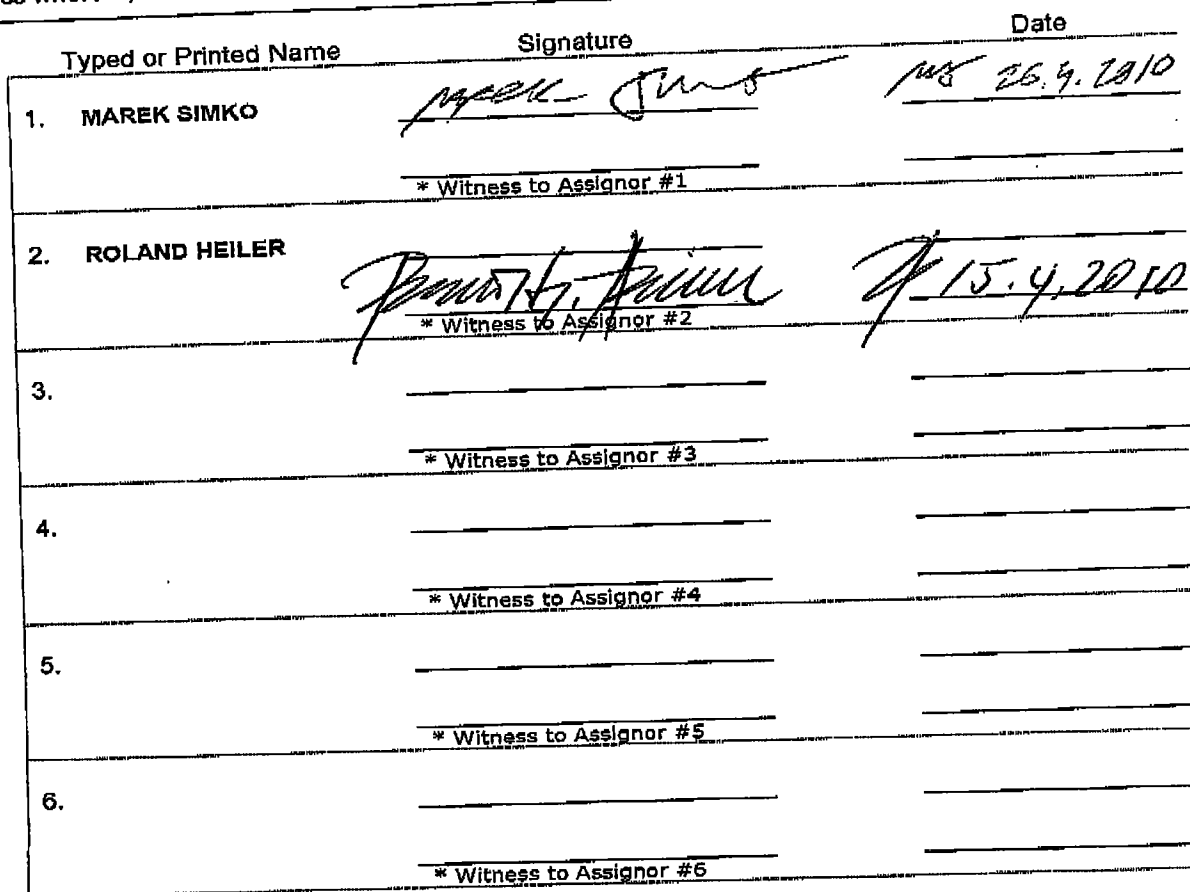 Typed or Printed Name Signature Date
1. MAREK SIMKO Marek Simko MS 26.4.2010
* Witness to Assignor #1
2. ROLAND HEILER 15.4.2010
* Witness to Assignor #2
3.
* Witness to Assignor #3
4.
* Witness to Assignor #4
5.
* Witness to Assignor #5
6.
* Witness to Assignor #6